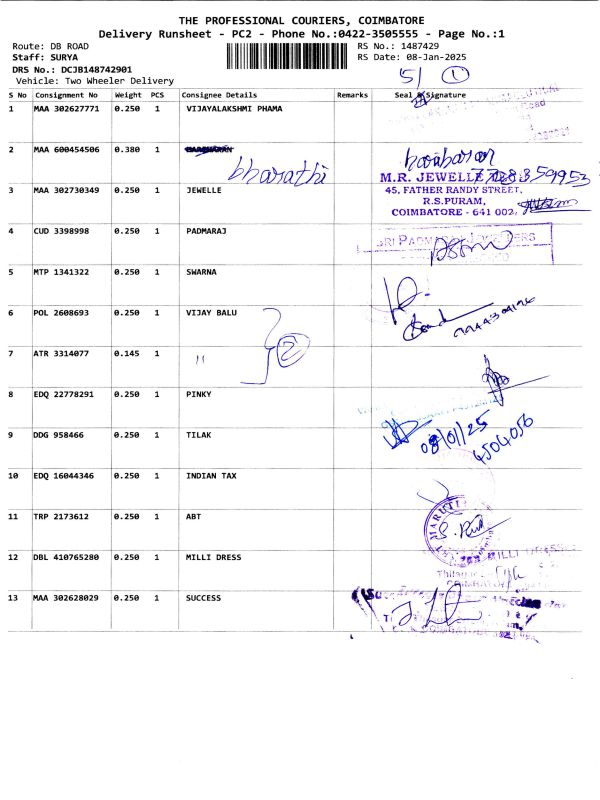 THE PROFESSIONAL COURIERS, COIMBATORE
Delivery Runsheet - PC2 - Phone No.:0422-3505555 - Page No.:1
Route: DB ROAD RS No.: 1487429
Staff: SURYA RS Date: 08-Jan-2025
DRS No.: DCJB148742901
Vehicle: Two Wheeler Delivery
5/ 1
S No Consignment No Weight PCS Consignee Details Remarks Seal & Signature
1 MAA 302627771 0.250 1 VIJAYALAKSHMI PHAMA
2 MAA 600454506 0.380 1
bharathi
3 MAA 302730349 0.250 1 JEWELLE M.R. JEWELLE
45, FATHER RANDY STREET,
R.S.PURAM,
COIMBATORE - 641 002.
4 CUD 3398998 0.250 1 PADMARAJ SRI
5 MTP 1341322 0.250 1 SWARNA
6 POL 2608693 0.250 1 VIJAY BALU
7 ATR 3314077 0.145 1 " 2
8 EDQ 22778291 0.250 1 PINKY
9 DDG 958466 0.250 1 TILAK 08/01/25
4504056
10 EDQ 16044346 0.250 1 INDIAN TAX
11 TRP 2173612 0.250 1 ABT MARUTI
12 DBL 410765280 0.250 1 MILLI DRESS MILLI
13 MAA 302628029 0.250 1 SUCCESS